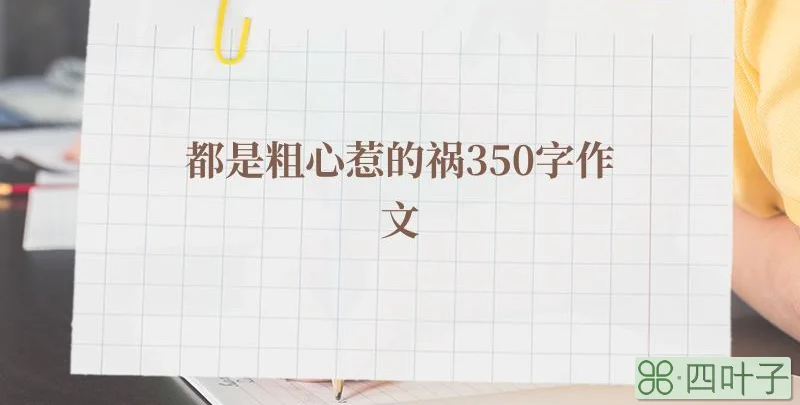 都是粗心惹的祸350字作
文
四叶子